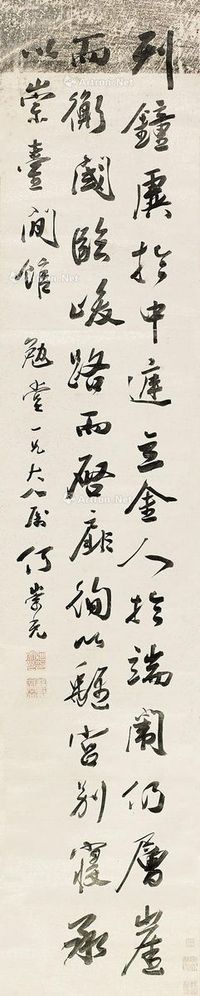 列鐘虡於中庭立金人於端闈仍層崖
而衡閾臨峻路而啓扉徇以離宮別寢承
以崇臺閒館
勉堂一兄大人屬
Artron.Net